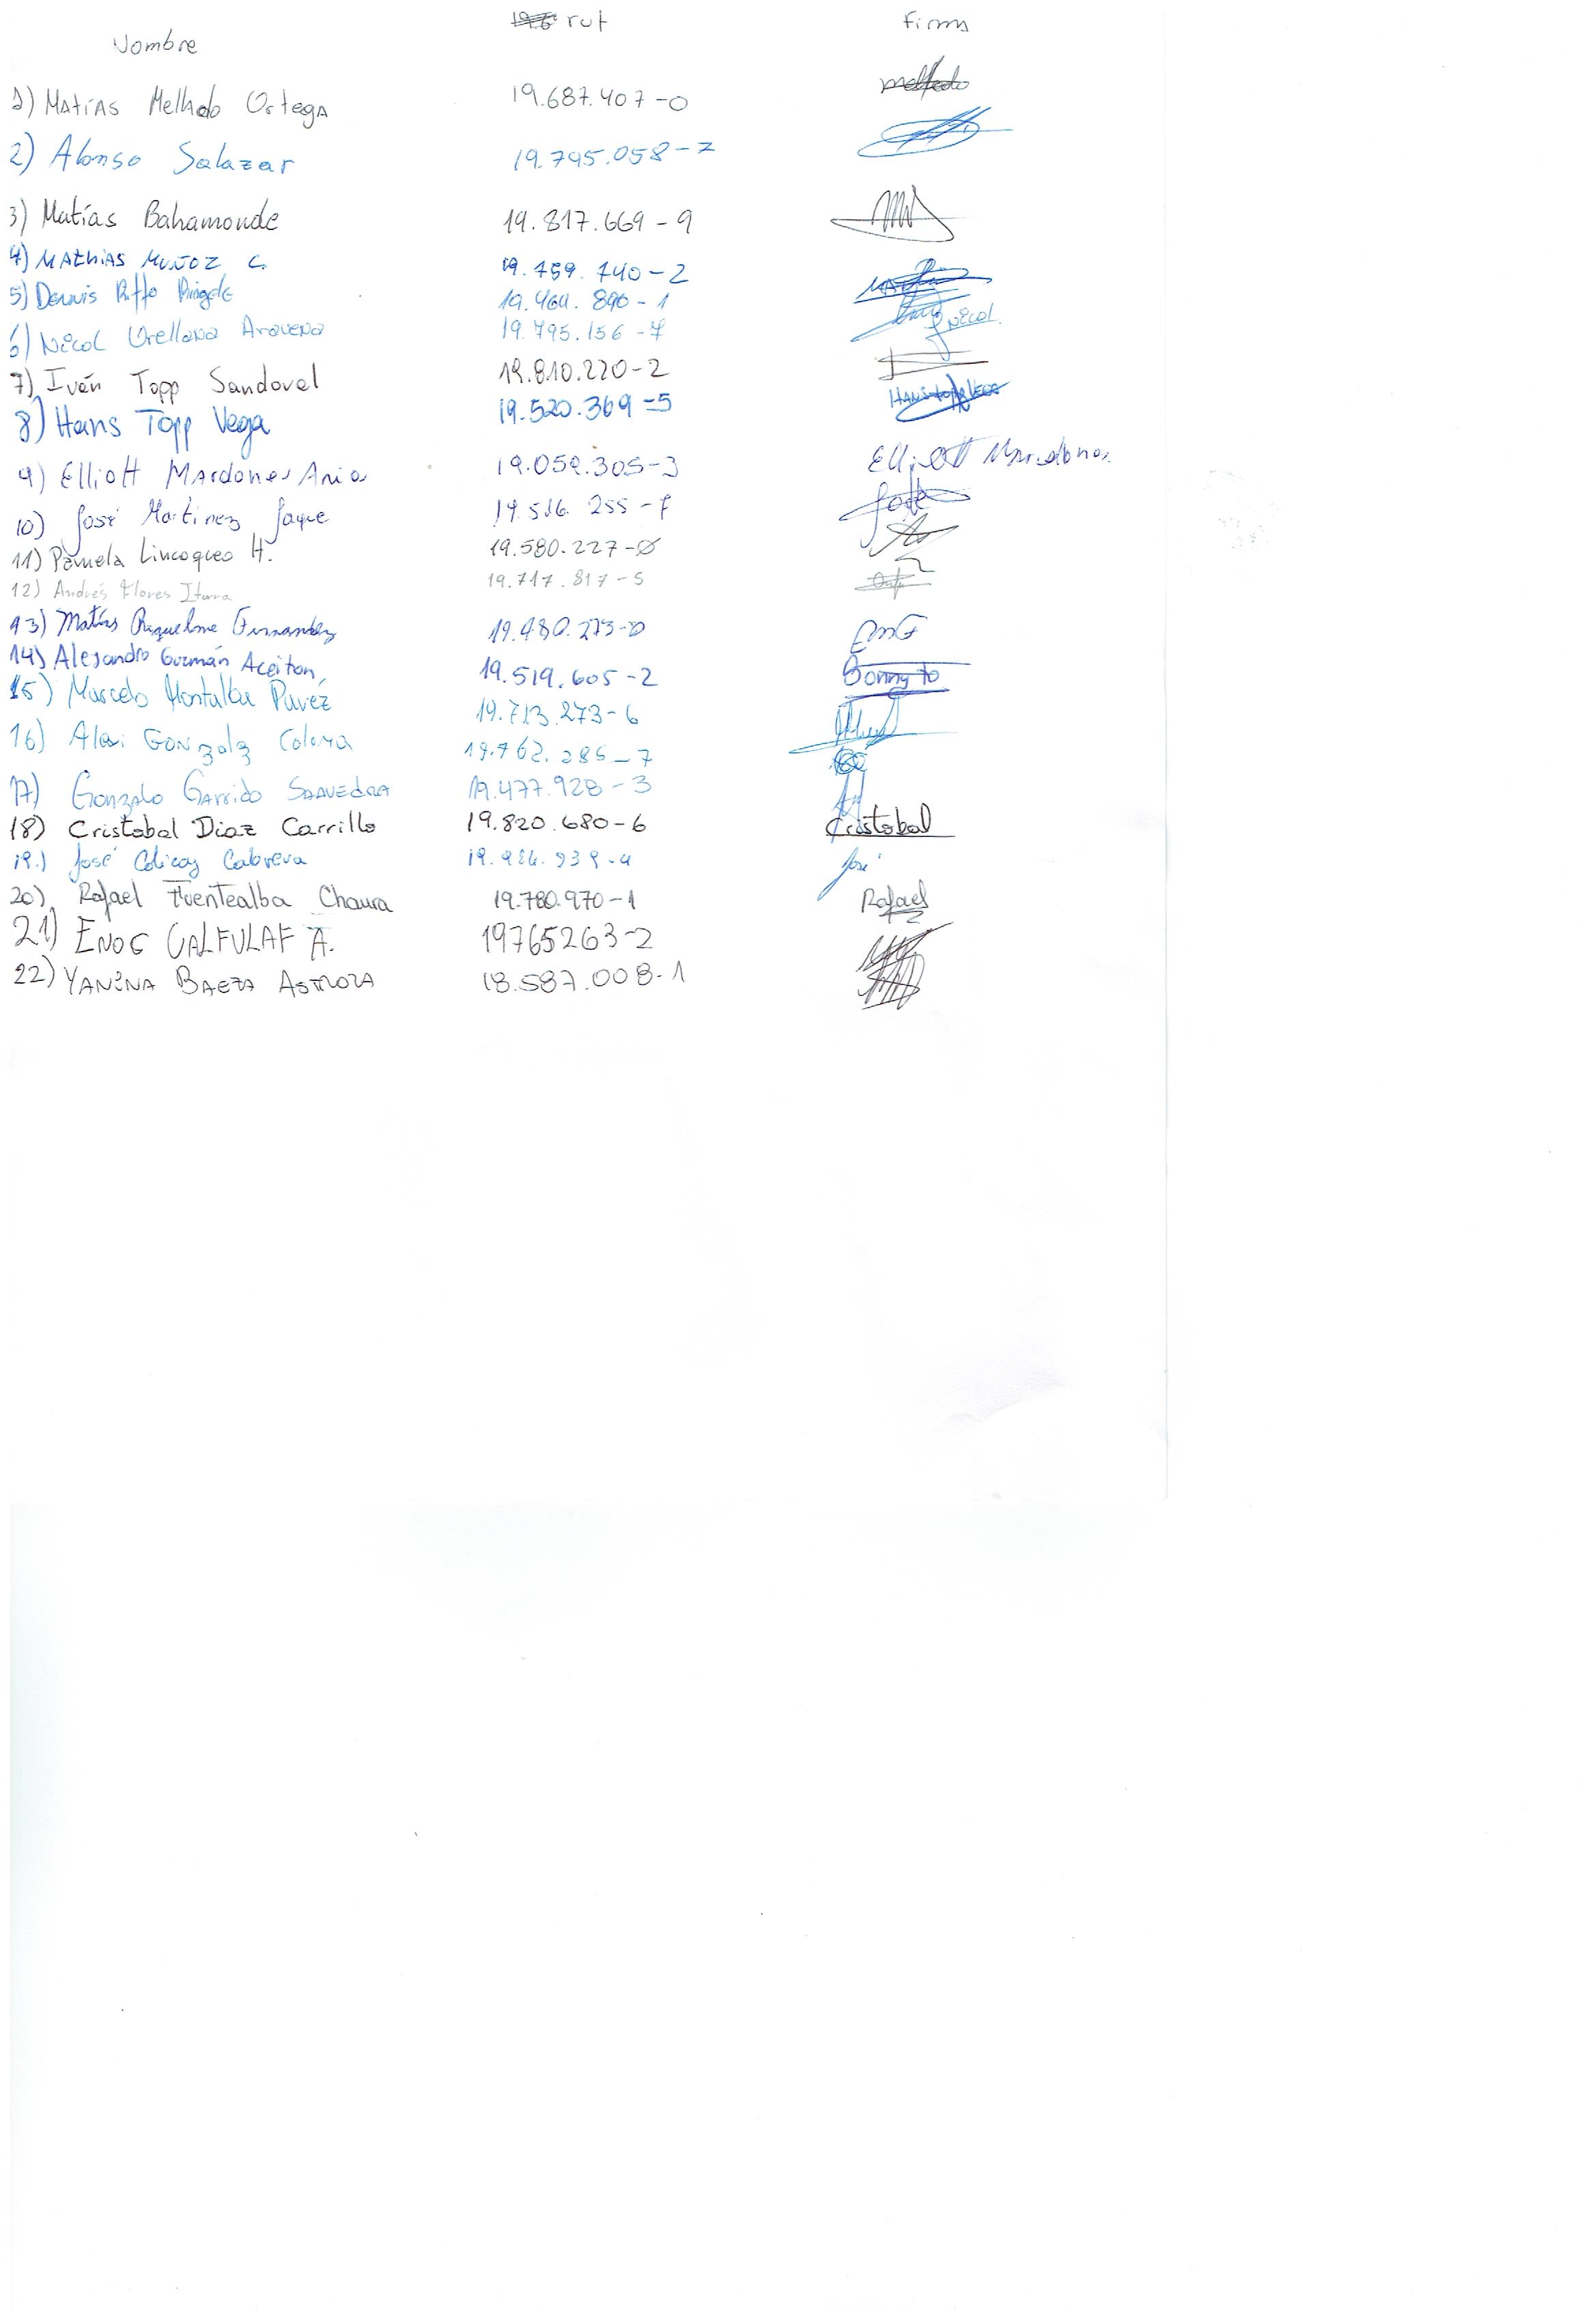 Nombre rut firma
1) Matías Mellado Ortega 19.687.407-0 mellado
2) Alonso Salazar 19.795.058-7
3) Matías Bahamonde 19.817.669-9
4) MAthiAS MUÑOZ C. 19.759.740-2
5) Dennis Riffo 19.464.890-1
6) Nicol Orellana Aravena 19.795.156-7 Nicol
7) Iván Topp Sandoval 19.810.220-2
8) Hans Topp Vega 19.520.369-5 HANS topp VEGA
9) Elliott Mardones Aria 19.059.305-3 Elliott Mardones
10) José Martinez Jaque 19.516.255-7 José
11) Pamela Lincoqueo H. 19.580.227-0
12) Andrés Flores Iturra 19.717.817-5
13) Matías Riquelme Fernandez 19.480.273-0
14) Alejandro Guzmán Aceiton 19.519.605-2 Bonny to
15) Marcelo Montalba Pavez 19.713.273-6
16) Alexi GONzalz Coloma 19.762.285-7
17) Gonzalo Garrido SAAVEDRA 19.477.928-3
18) Cristobal Diaz Carrillo 19.820.680-6 Cristobal
19.) José Colicoy Cabrera José
20) Rafael Fuentealba Chaura 19.780.970-1 Rafael
21) ENOC CALFULAF A. 19765263-2
22) YANINA BAEZA ASTROZA 18.587.008-1